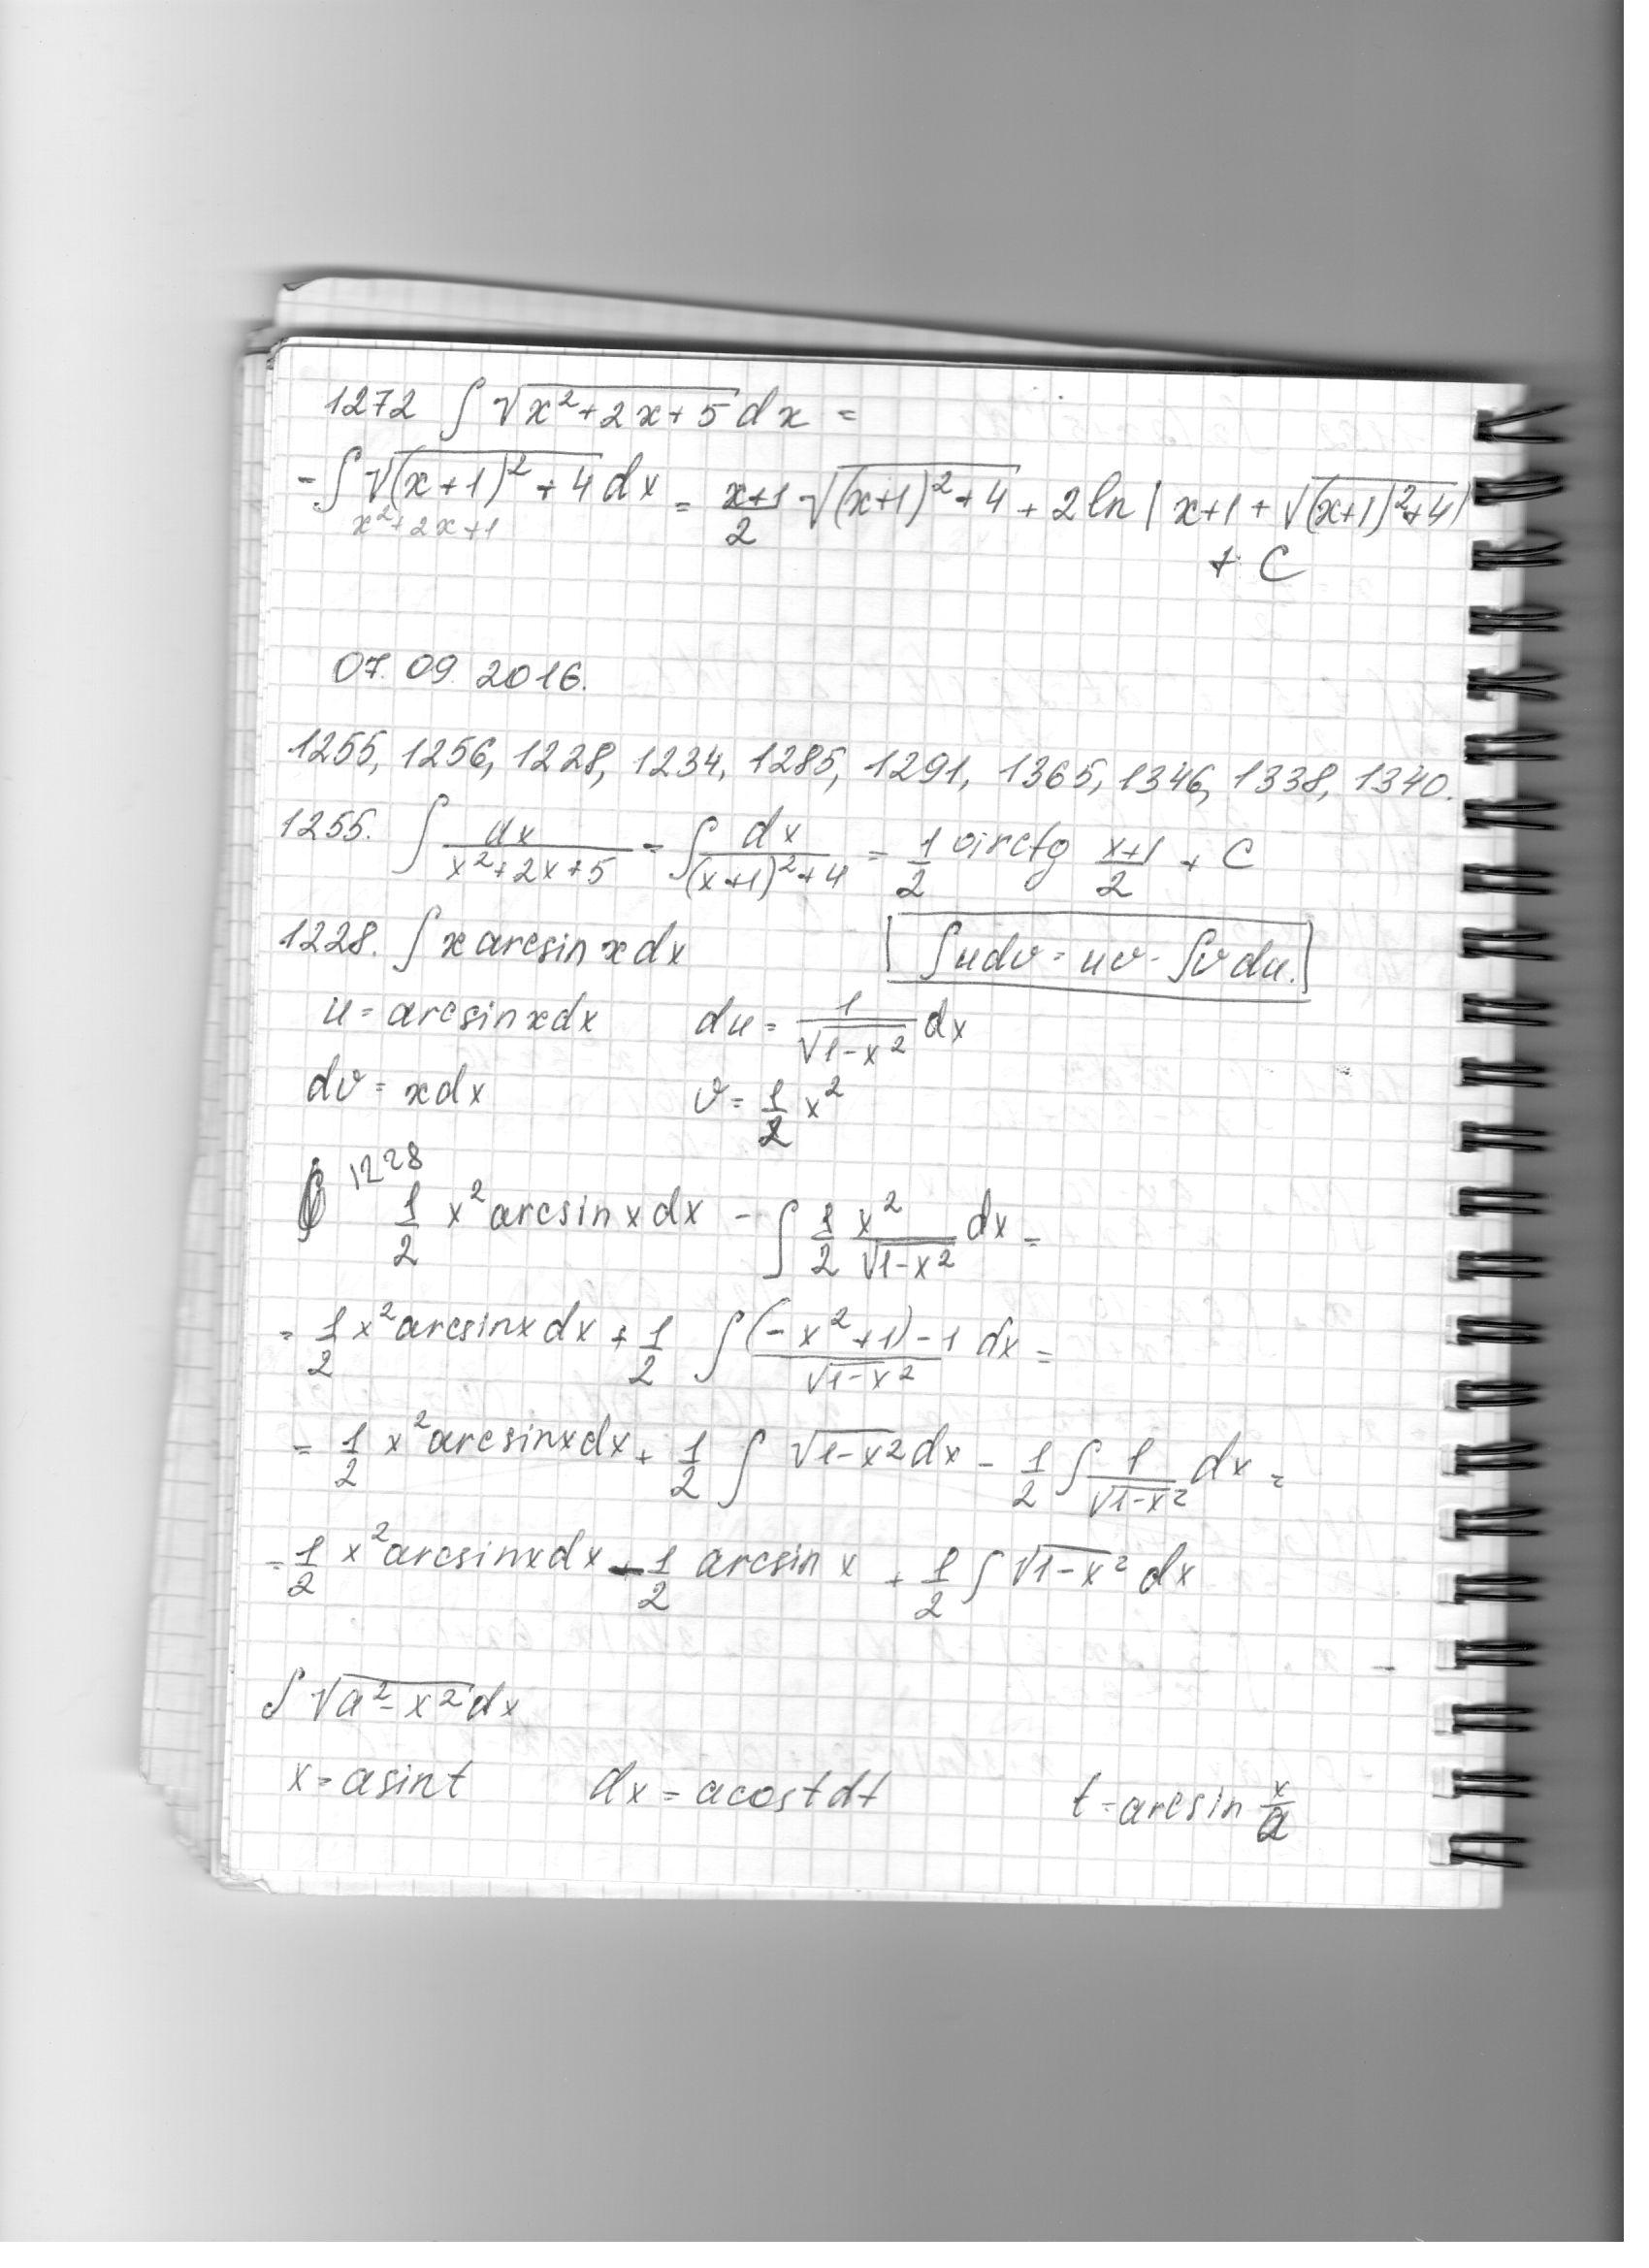 1272 ∫ √(x²+2x+5) dx =
= ∫ √((x+1)²+4) dx = (x+1)/2 √((x+1)²+4) + 2 ln | x+1 + √((x+1)²+4) |
x²+2x+1
+ C
07.09.2016.
1255, 1256, 1228, 1234, 1285, 1291, 1365, 1346, 1338, 1340.
1255. ∫ dx/(x²+2x+5) = ∫ dx/((x+1)²+4) = 1/2 arctg (x+1)/2 + C
1228. ∫ x arcsin x dx ∫udv = uv - ∫v du.
u = arcsin x dx du = 1/√(1-x²) dx
dv = x dx v = 1/2 x²
1228
1/2 x² arcsin x dx - ∫ 1/2 x²/√(1-x²) dx =
= 1/2 x² arcsin x dx + 1/2 ∫ ((-x²+1)-1)/√(1-x²) dx =
= 1/2 x² arcsin x dx + 1/2 ∫ √(1-x²) dx - 1/2 ∫ 1/√(1-x²) dx =
= 1/2 x² arcsin x dx - 1/2 arcsin x + 1/2 ∫ √(1-x²) dx
∫ √(a²-x²) dx
x = a sin t dx = a cos t dt t = arcsin x/a